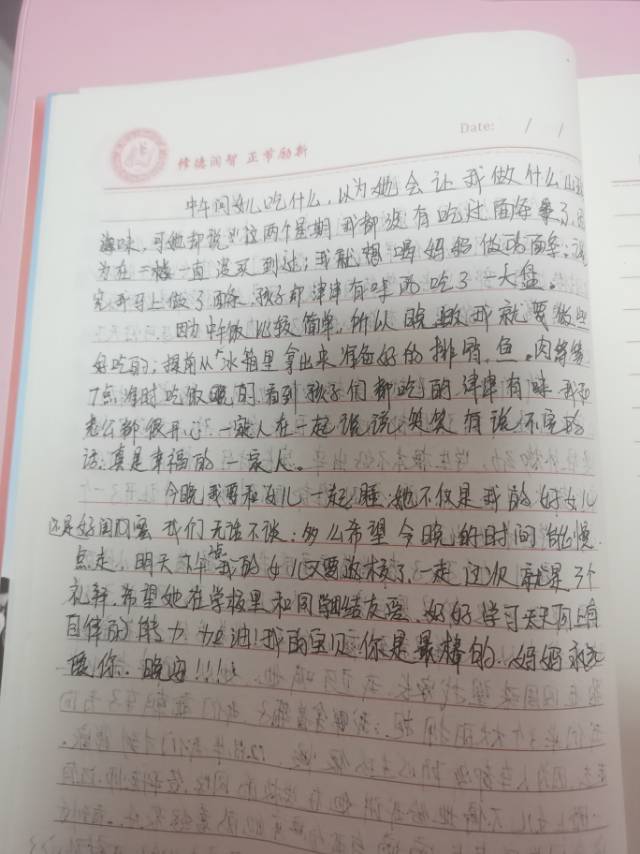 修德润智 正带励新
Date: / /
中午问女儿吃什么,以为她会让我做什么山珍
海味,可她却说"这两个星期我都没有吃过面条了,因
为在一楼一直没买到过;我就想喝妈妈做的面条;说
完我马上做了面条.孩子都津津有味的吃了一大盘。
因为中午饭比较简单,所以晚饭我就要做些
好吃的;提前从"冰箱里拿出来准备好的排骨.鱼.肉等等
7点准时吃饭
看到孩子们都吃的津津有味 我和
老公都很开心.一家人在一起说说笑笑有说不完的
话.真是幸福的一家人。
今晚我要和女儿一起睡.她不仅是我的好女儿
还是好闺蜜 我们无话不谈;多么希望今晚的时间能慢
点走,明天下午我的女儿又要返校了.一走这次就是3个
礼拜.希望她在学校里和同学团结友爱.好好学习天天向上
自律的能力 加油!我的宝贝.你是最棒的.妈妈永远
爱你.晚安!!!!